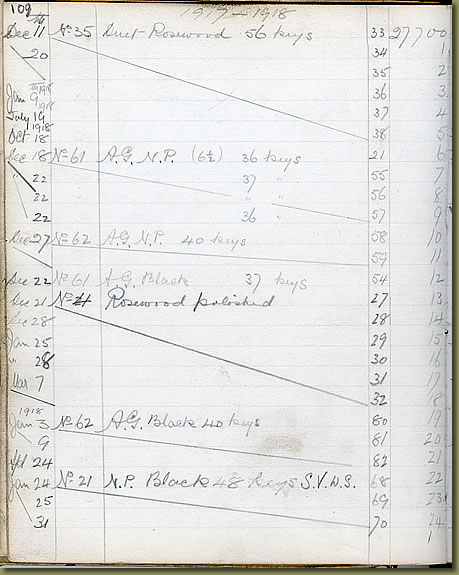 109 1917-1918
Dec 11 No 35 Duet Rosewood 56 keys 33 27700
20 34 1
35 2
Jan 9 1918 36 3
July 19 1918 37 4
Oct 18 1918 38 5
Dec 18 No 61 A.G. N.P. (6¼) 36 keys 21 6
22 37 " 55 7
22 " " 56 8
22 36 " 57 9
Dec 27 No 62 A.G. N.P. 40 keys 58 10
59 11
Dec 22 No 61 A.G. Black 37 keys 54 12
Dec 21 No 4 Rosewood polished 27 13
Dec 28 28 14
Jan 25 29 15
" 28 30 16
Mar 7 31 17
32 18
1918
Jan 3 No 62 A.G. Black 40 keys 80 19
9 81 20
24 82 21
Jan 24 No 21 N.P. Black 48 keys S.V.W.S. 68 22
25 69 23
31 70 24
1